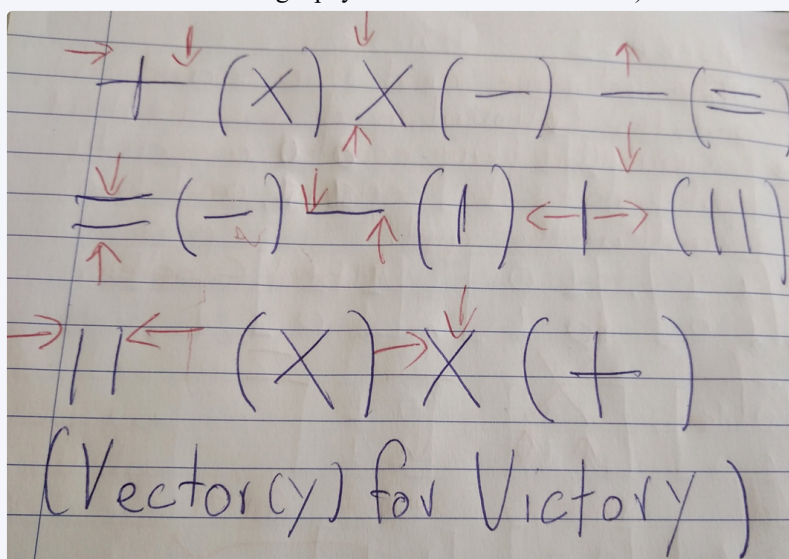 → + ↓ (×) ↓ × ↑ (−) ↑ − ↓ (=)
↓ = ↑ (−) ↓ − ↑ (|) ← | → (||)
→ || ← (×) → × ↓ (+)
(Vector(y) for Victory)